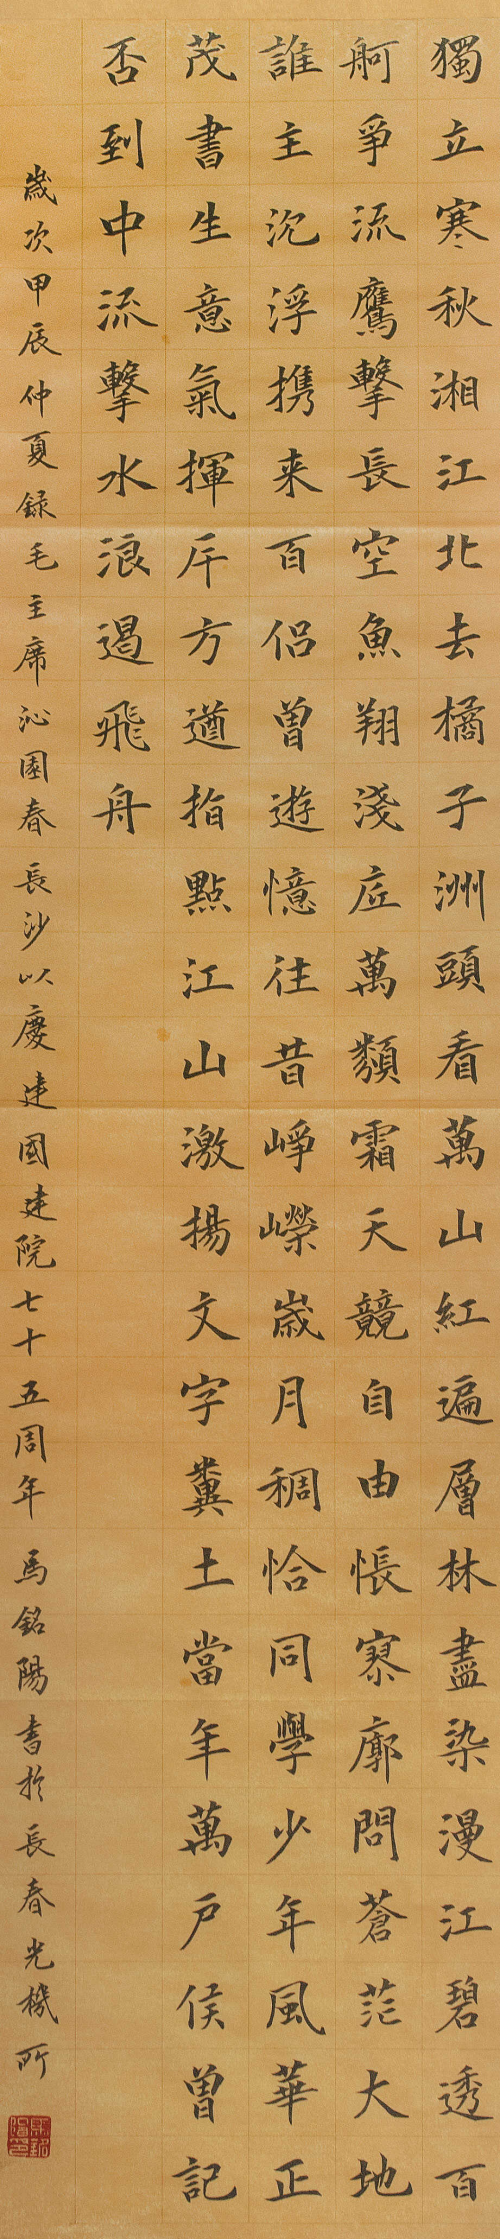 獨立寒秋湘江北去橘子洲頭看萬山紅遍層林盡染漫江碧透百
舸爭流鷹擊長空魚翔淺底萬類霜天競自由悵寥廓問蒼茫大地
誰主沉浮携来百侣曾遊憶往昔崢嶸歲月稠恰同學少年風華正
茂書生意氣揮斥方遒指點江山激揚文字糞土當年萬戶侯曾記
否到中流擊水浪遏飛舟
歲次甲辰仲夏録毛主席沁園春長沙以慶建國建院七十五周年 馬銘陽書於長春光機所
馬銘陽印